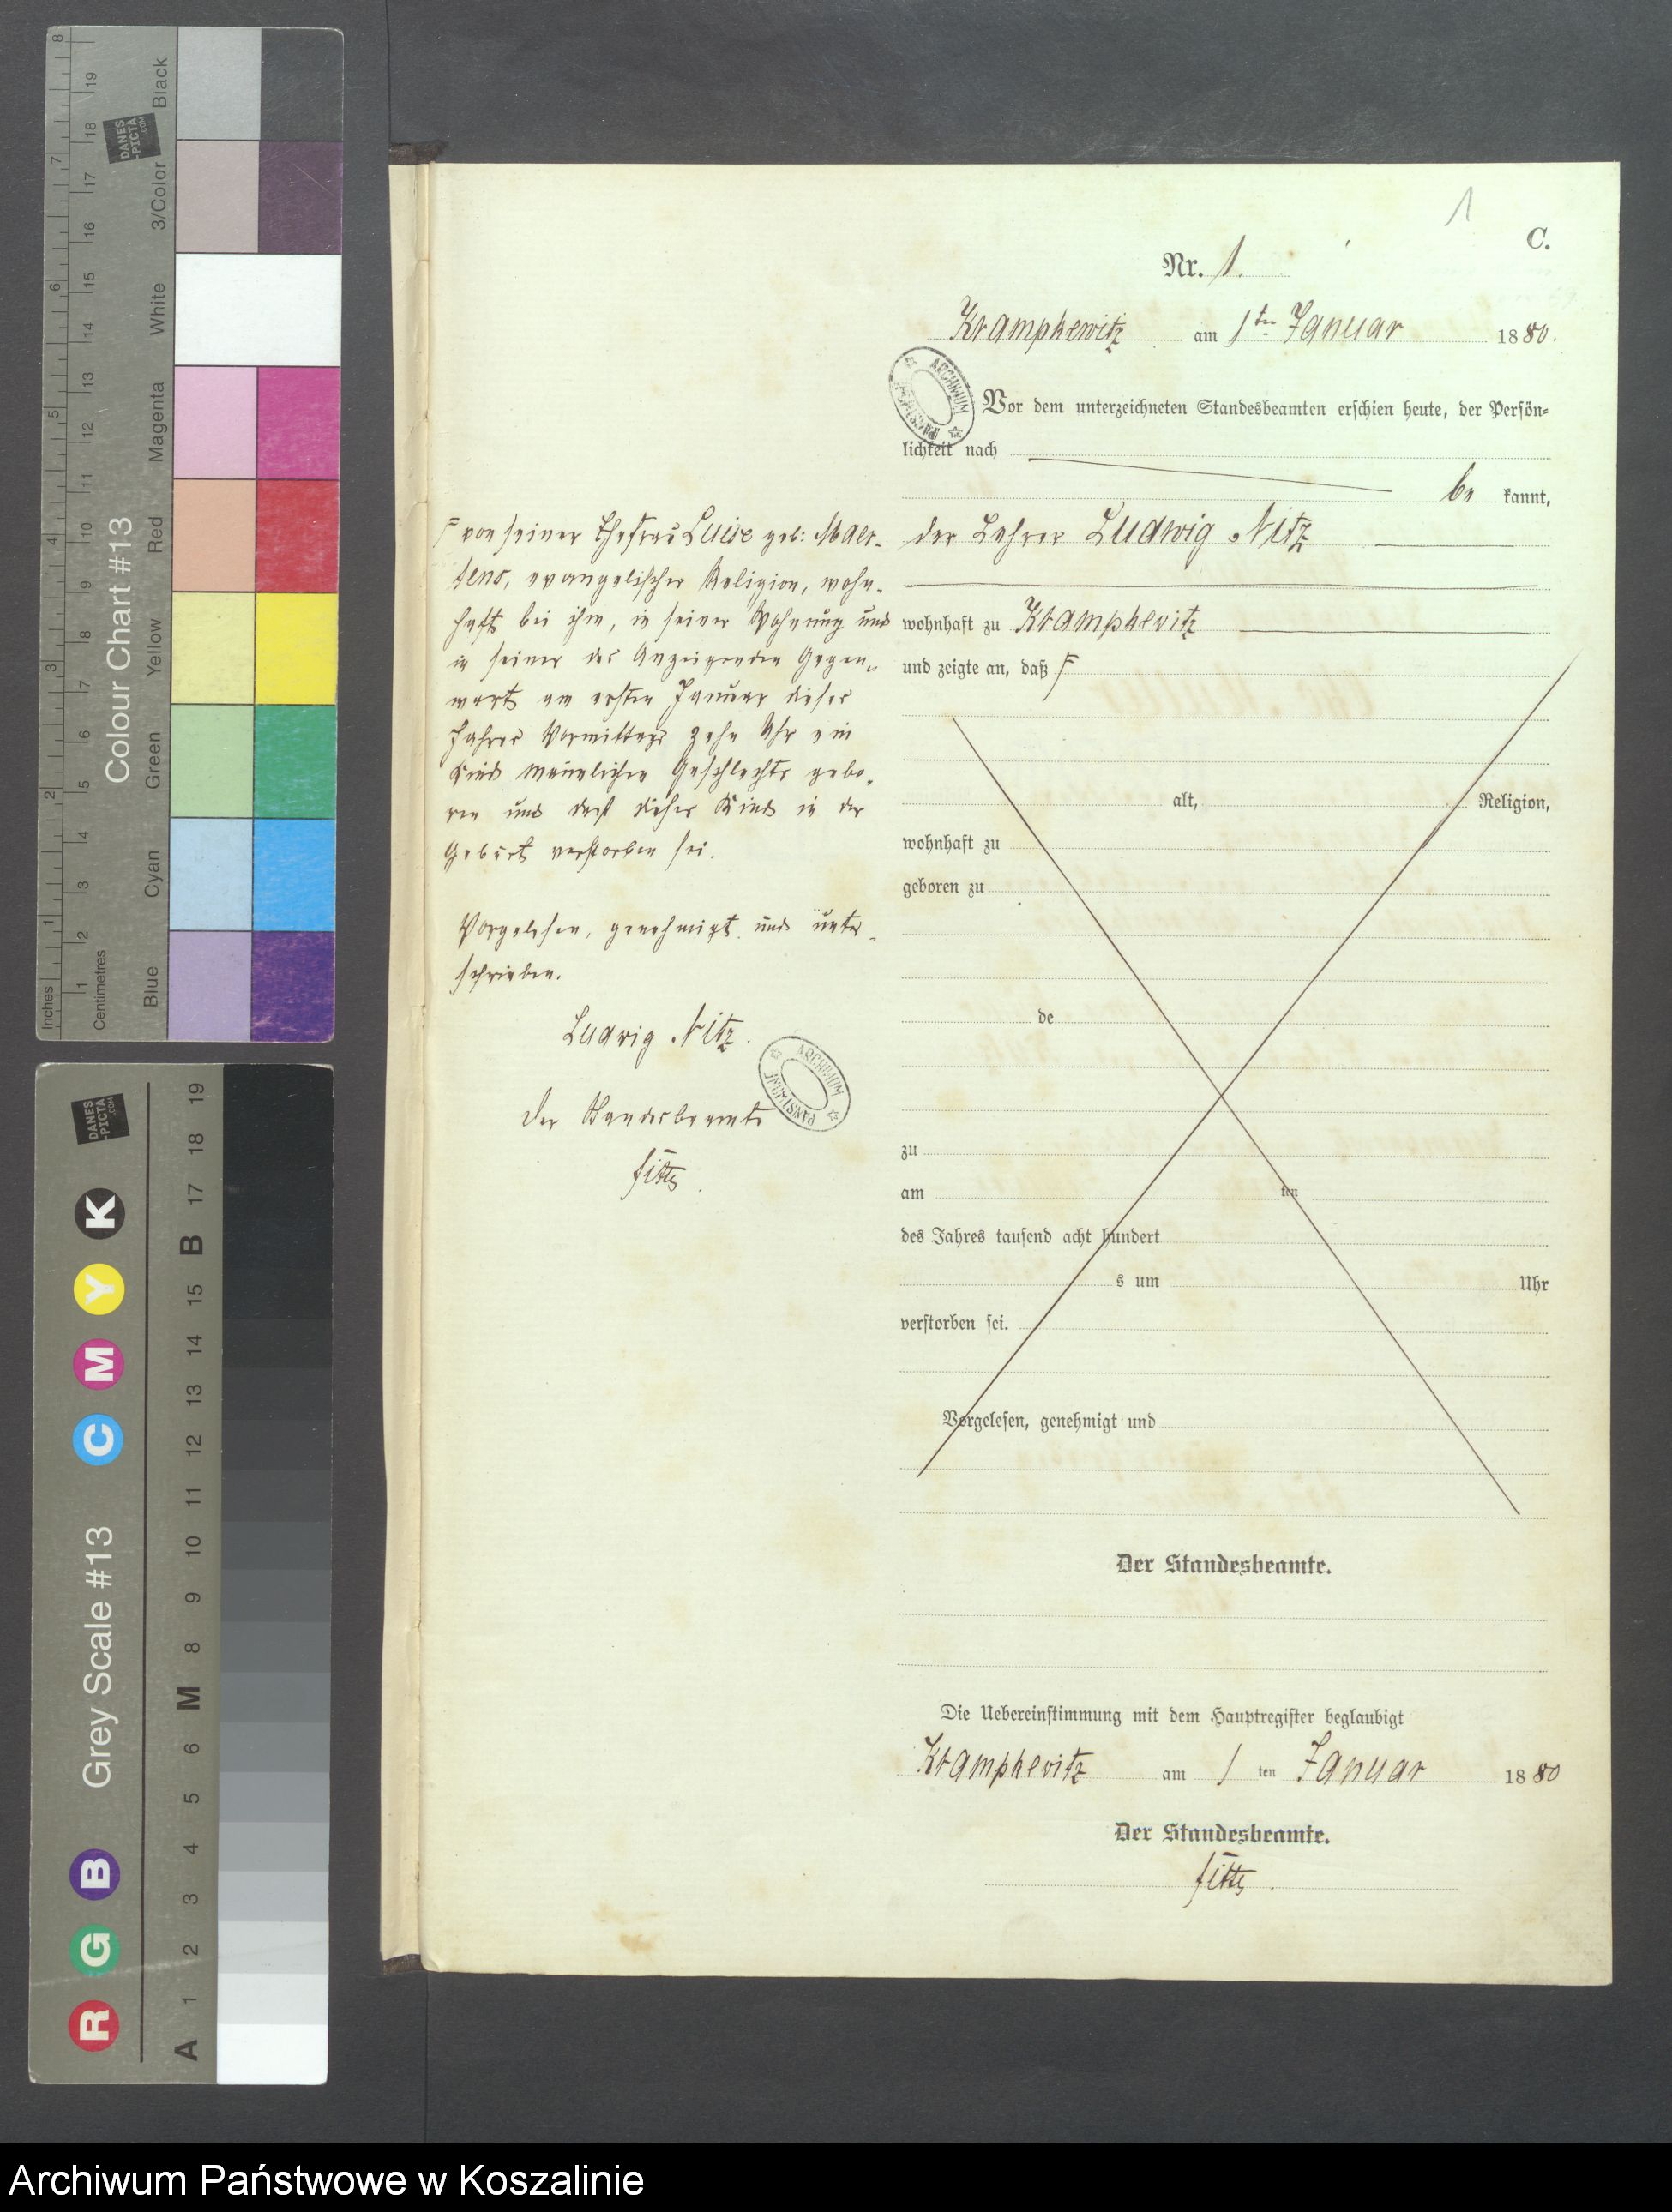 1
C.
Nr. 1.
Krampkewitz am 1ten Januar 1880.
Vor dem unterzeichneten Standesbeamten erschien heute, der Persön=
lichkeit nach
be kannt,
der Lehrer Ludwig Nitz
wohnhaft zu Krampkewitz
und zeigte an, daß F
F von seiner Ehefrau Luise geb: Maer-
tens, evangelischer Religion, wohn-
haft bei ihm, in seiner Wohnung und
in seiner des Anzeigenden Gegen-
wart am ersten Januar dieses
Jahres Vormittags zehn Uhr ein
Kind männlichen Geschlechts gebo-
ren und daß dieses Kind in der
Geburt verstorben sei.
Vorgelesen, genehmigt und unter-
schrieben.
Ludwig Nitz.
Der Standesbeamte
alt, Religion,
wohnhaft zu
geboren zu
de
zu
am ten
des Jahres tausend acht hundert
s um Uhr
verstorben sei.
Vorgelesen, genehmigt und
Der Standesbeamte.
Die Uebereinstimmung mit dem Hauptregister beglaubigt
Krampkewitz am 1 ten Januar 1880
Der Standesbeamte.
ARCHIWUM PAŃSTWOWE
ARCHIWUM PAŃSTWOWE
Colour Chart #13
Blue Cyan Green Yellow Red Magenta White 3/Color Black
Inches 1 2 3 4 5 6 7 8
Centimetres 1 2 3 4 5 6 7 8 10 11 12 13 14 15 16 17 18 19
DANES
-PICTA
.COM
Grey Scale #13
R G B C M Y K
A 1 2 3 4 5 6 M 8 9 10 11 12 13 14 15 B 17 18 19
DANES
-PICTA
.COM
Archiwum Państwowe w Koszalinie